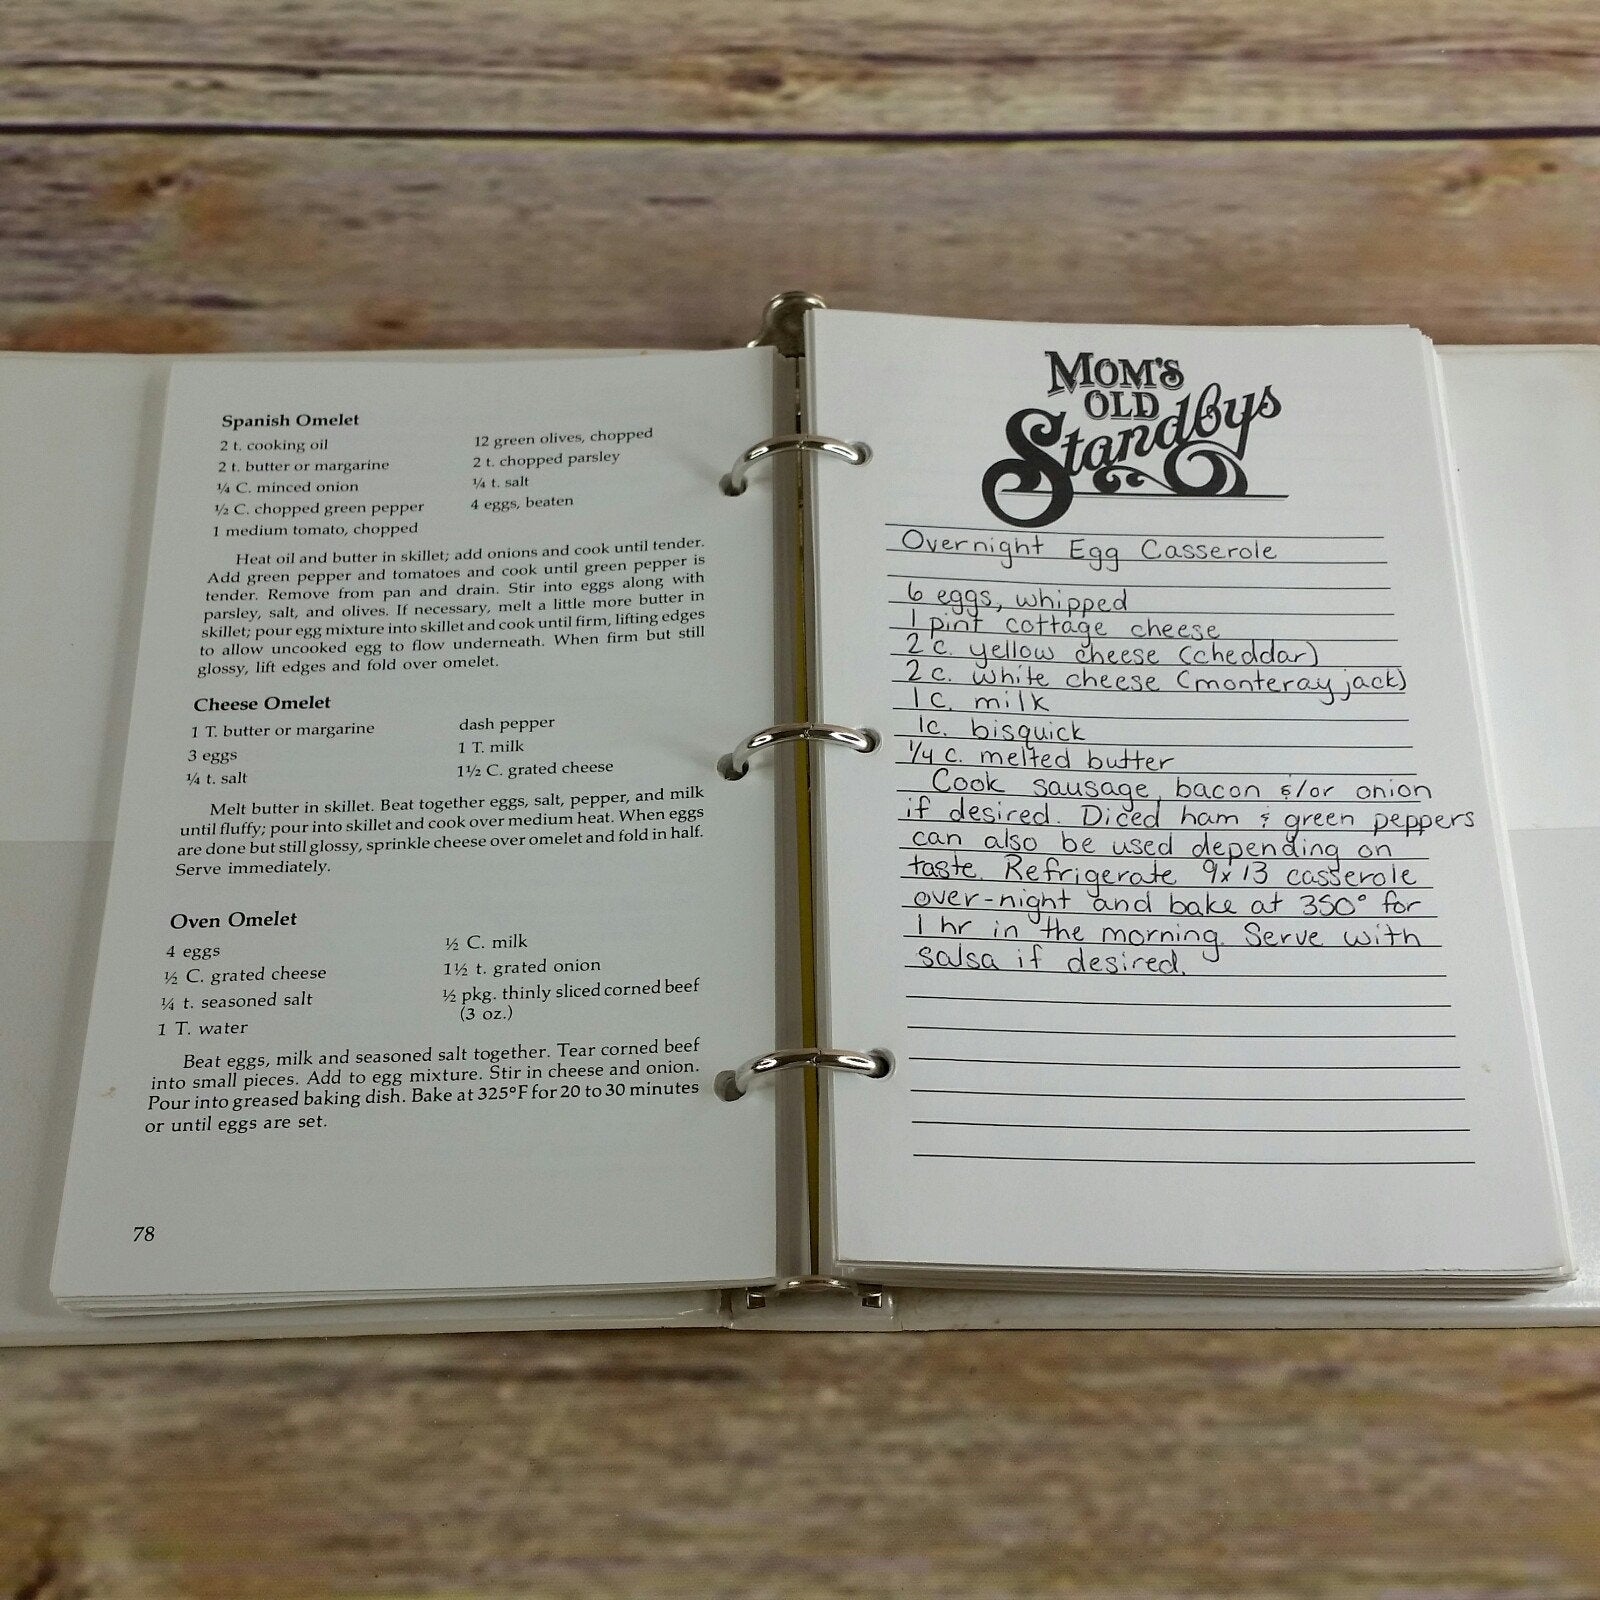 Spanish Omelet
2 t. cooking oil
2 t. butter or margarine
¼ C. minced onion
½ C. chopped green pepper
1 medium tomato, chopped
12 green olives, chopped
2 t. chopped parsley
¼ t. salt
4 eggs, beaten
Heat oil and butter in skillet; add onions and cook until tender.
Add green pepper and tomatoes and cook until green pepper is
tender. Remove from pan and drain. Stir into eggs along with
parsley, salt, and olives. If necessary, melt a little more butter in
skillet; pour egg mixture into skillet and cook until firm, lifting edges
to allow uncooked egg to flow underneath. When firm but still
glossy, lift edges and fold over omelet.
Cheese Omelet
1 T. butter or margarine
3 eggs
¼ t. salt
dash pepper
1 T. milk
1½ C. grated cheese
Melt butter in skillet. Beat together eggs, salt, pepper, and milk
until fluffy; pour into skillet and cook over medium heat. When eggs
are done but still glossy, sprinkle cheese over omelet and fold in half.
Serve immediately.
Oven Omelet
4 eggs
½ C. grated cheese
¼ t. seasoned salt
1 T. water
½ C. milk
1½ t. grated onion
½ pkg. thinly sliced corned beef
(3 oz.)
Beat eggs, milk and seasoned salt together. Tear corned beef
into small pieces. Add to egg mixture. Stir in cheese and onion.
Pour into greased baking dish. Bake at 325°F for 20 to 30 minutes
or until eggs are set.
78
MOM'S
OLD
Standbys
Overnight Egg Casserole
6 eggs, whipped
1 pint cottage cheese
2 c. yellow cheese (cheddar)
2 c. white cheese (monteray jack)
1 c. milk
1c. bisquick
1/4 c. melted butter
Cook sausage, bacon &/or onion
if desired. Diced ham & green peppers
can also be used depending on
taste. Refrigerate 9x13 casserole
over-night and bake at 350° for
1 hr in the morning. Serve with
salsa if desired.